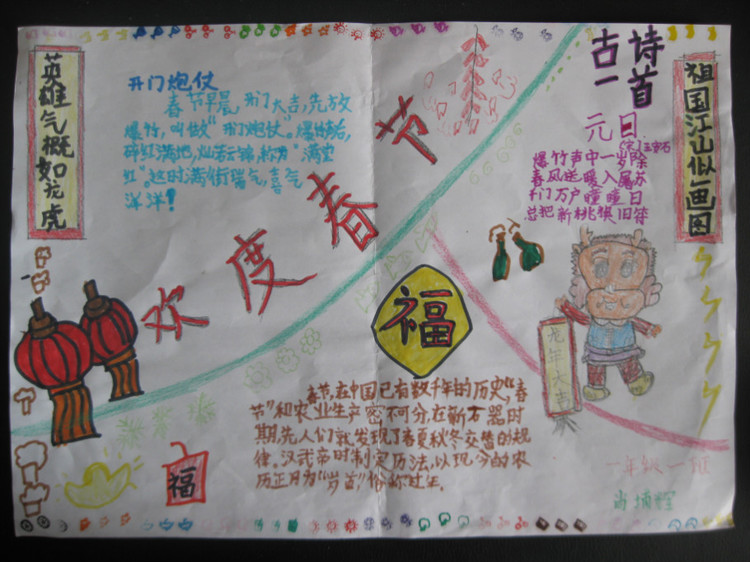 英雄气概如龙虎
开门炮仗
春节早晨 开门大吉,先放
爆竹,叫做"开门炮仗"。爆竹声后,
碎红满地,灿若云锦,称为"满堂
红"。这时满街瑞气,喜气
洋洋!
欢度春节
古诗
一首
元日
(宋)王安石
爆竹声中一岁除
春风送暖入屠苏
千门万户曈曈日
总把新桃换旧符
祖国江山似画图
福
龙年大吉
春节,在中国已有数千年的历史,"春
节"和农业生产密不可分,在新石器时
期,先人们就发现了春夏秋冬交替的规
律。汉武帝时制定历法,以现今的农
历正月为"岁首"俗称过年。
福
一年级一班
肖